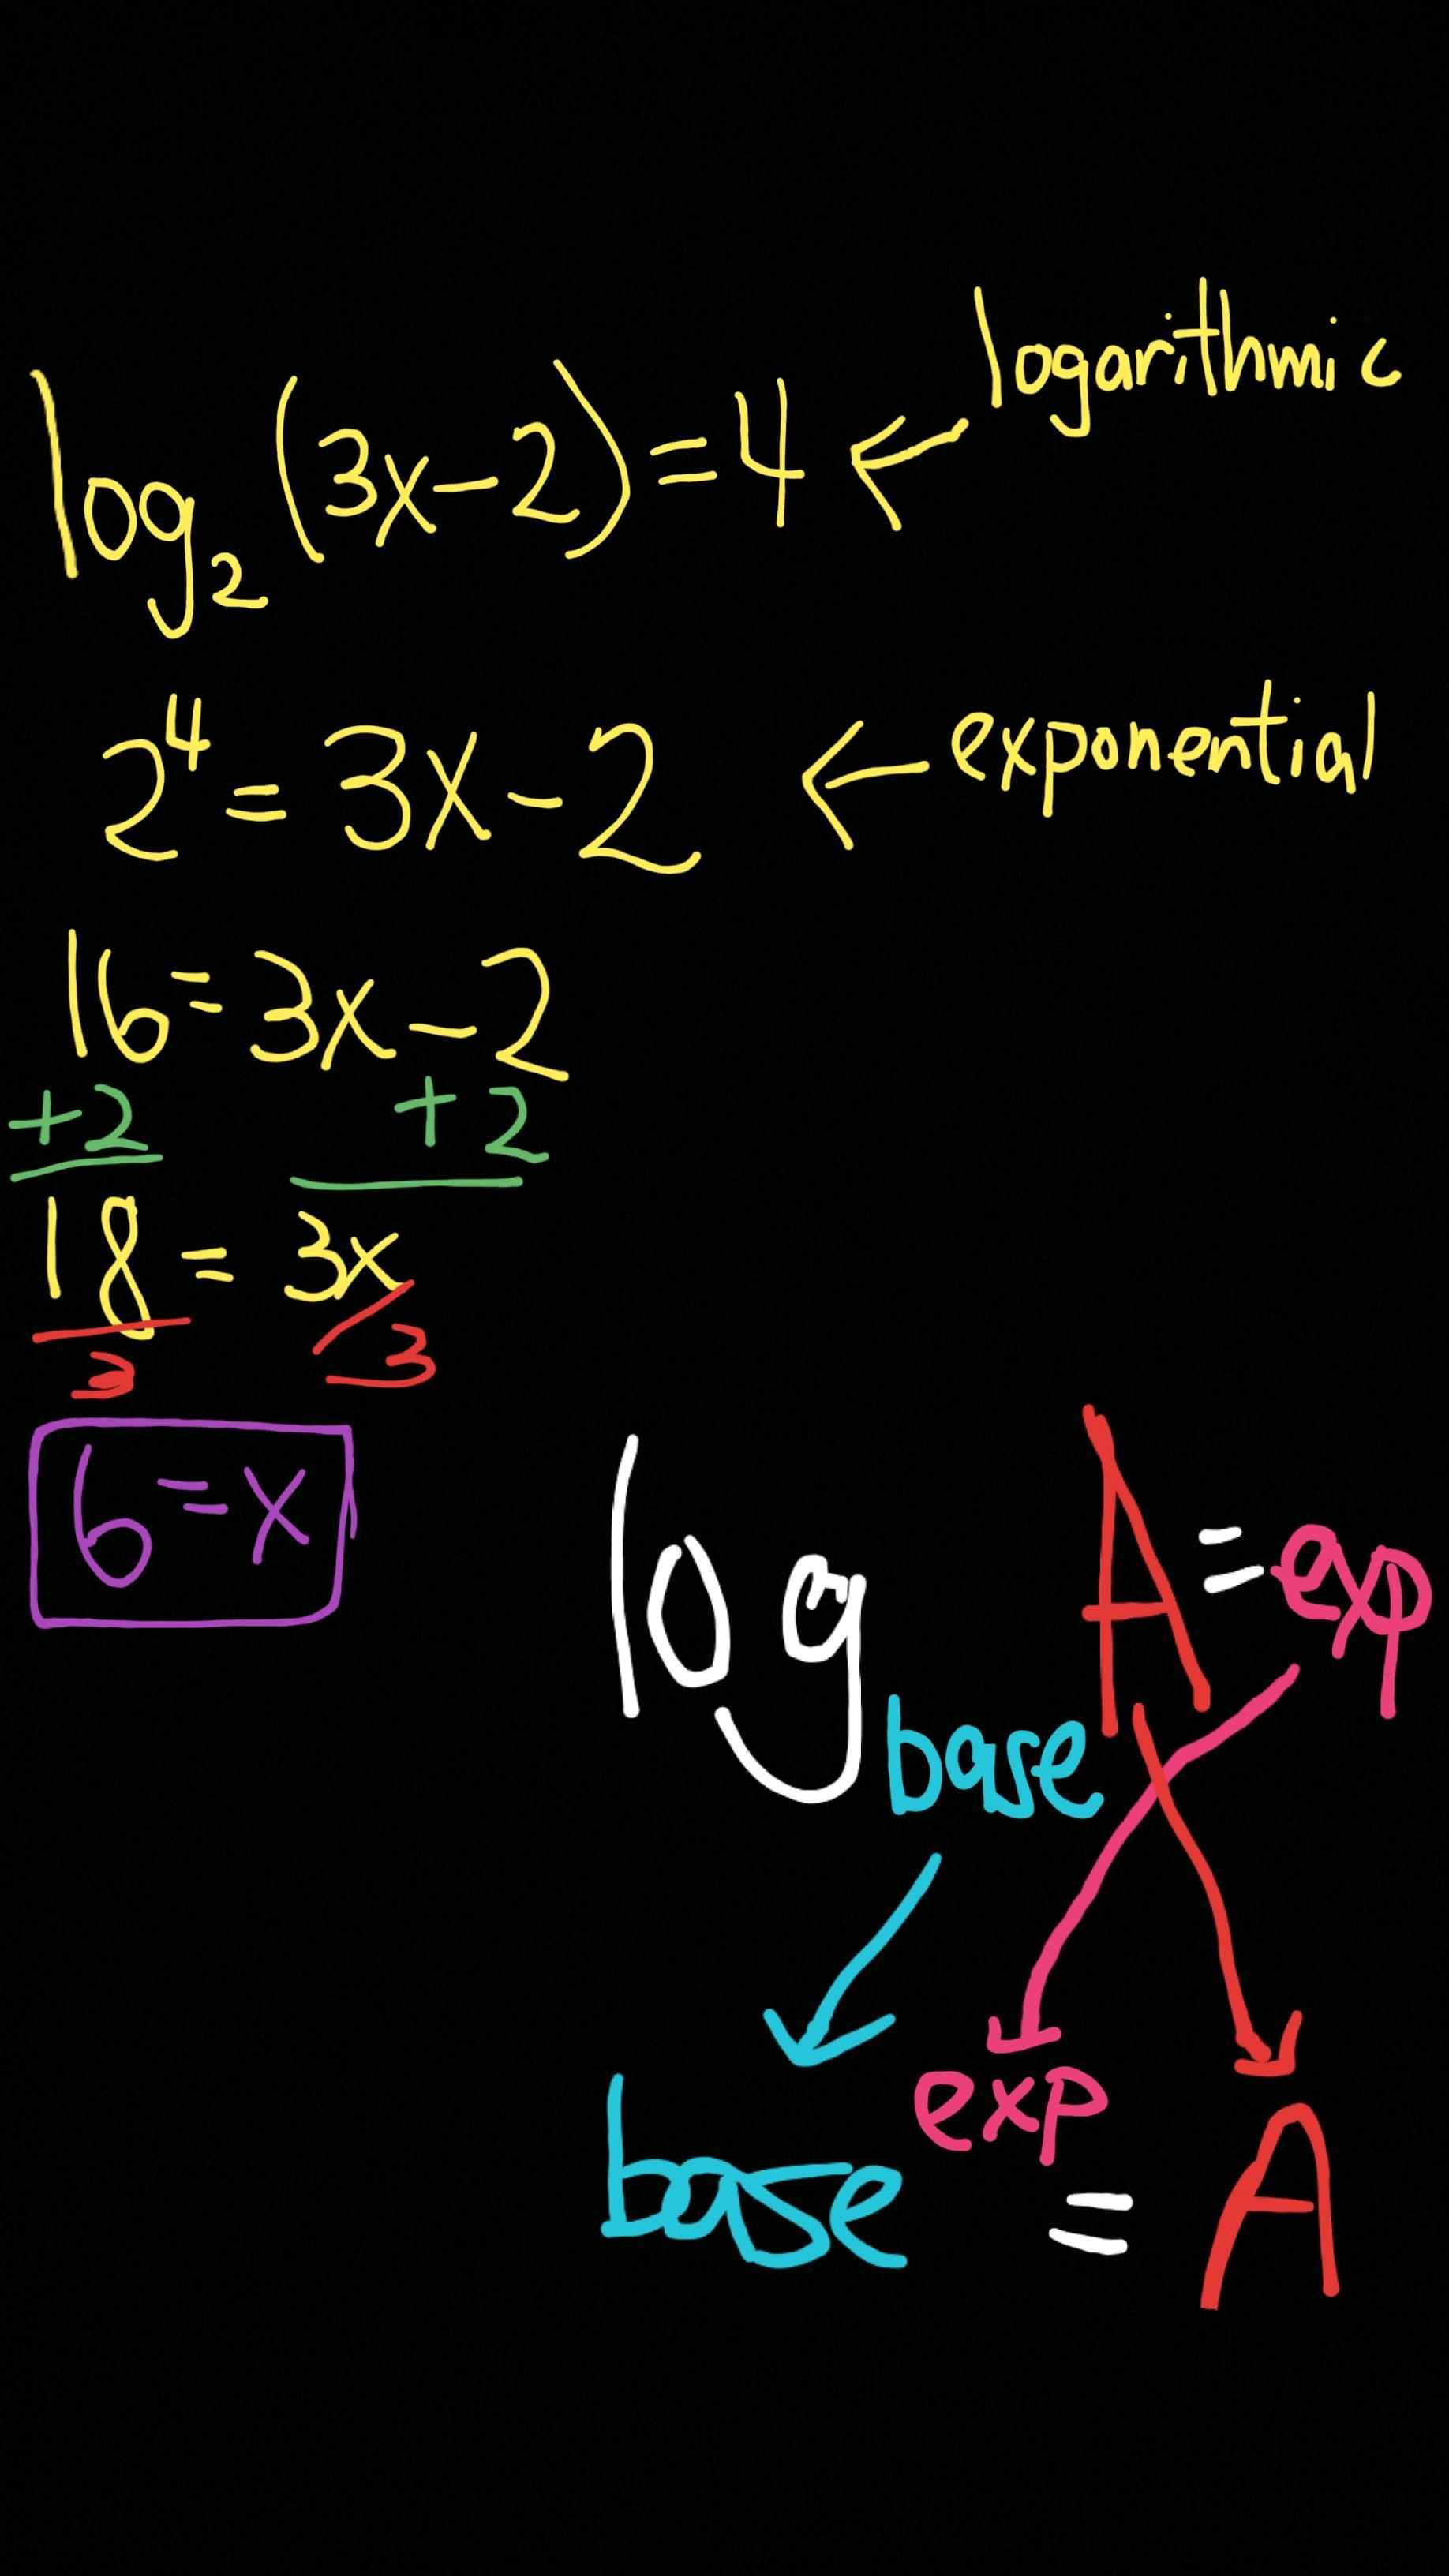 log₂(3x-2)=4 ← logarithmic
2⁴=3x-2 ← exponential
16=3x-2
+2 +2
18=3x
3 /3
6=x
log base A = exp
base exp = A